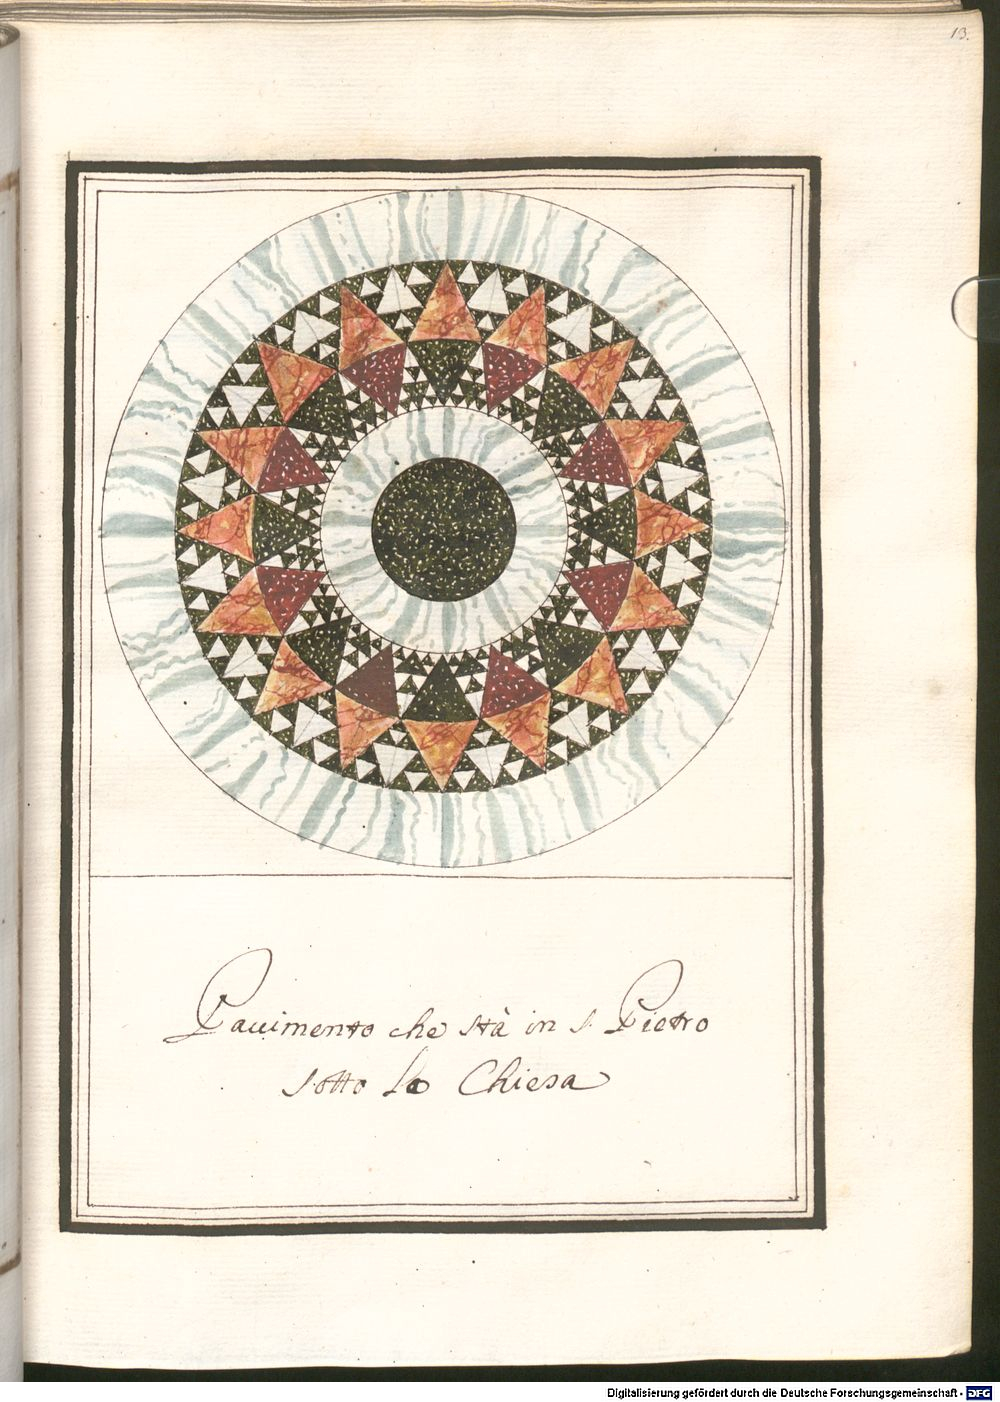 13.
Pauimento che stà in s. Pietro
sotto la Chiesa
Digitalisierung gefördert durch die Deutsche Forschungsgemeinschaft - DFG